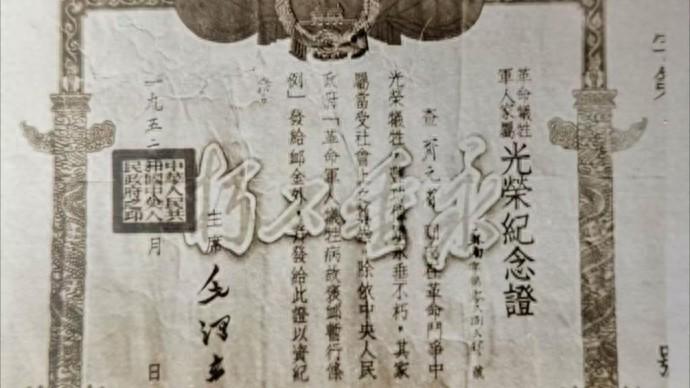 革命犧牲
軍人家屬
光榮紀念證
查
革命鬥爭中
光榮犧牲
永垂不朽,其家
屬當受社會上之尊崇,除依中央人民
政府「革命軍人犧牲病故褒卹暫行條
例」發給卹金外,并發給此證以資紀
念
主席
毛澤東
一九五二
月
日
中華人民共
和國中央人
民政府之印
永垂不朽